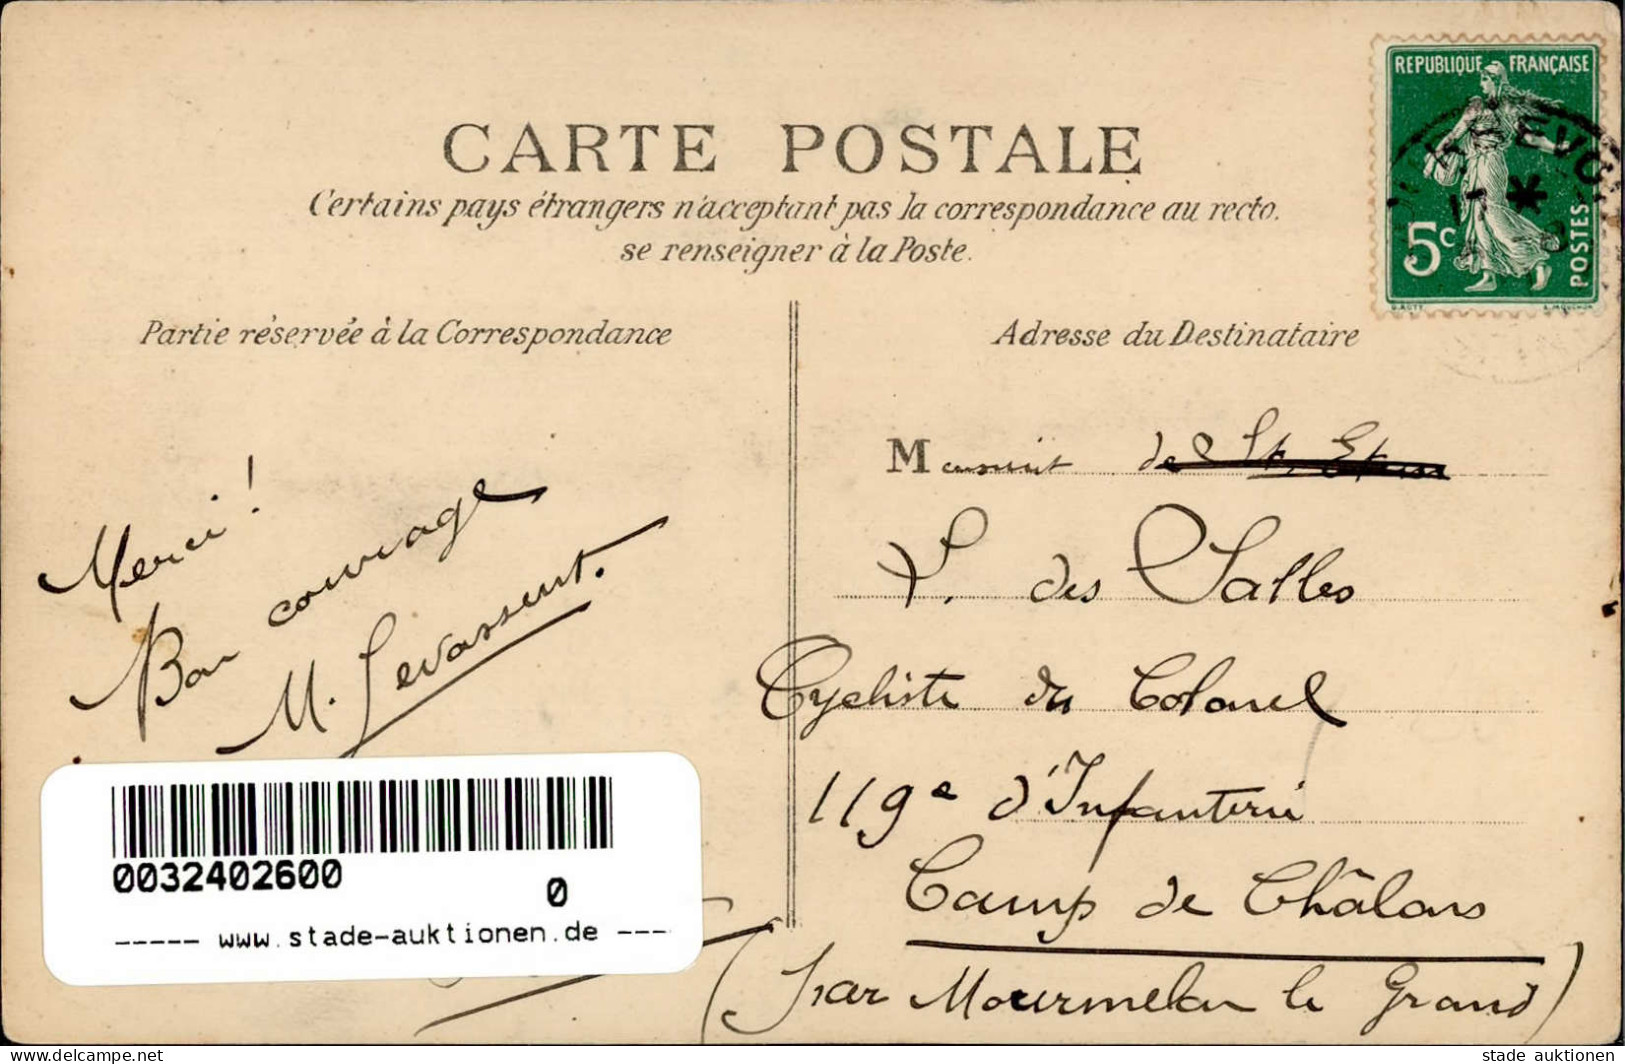 CARTE POSTALE
Certains pays étrangers n'acceptant pas la correspondance au recto.
se renseigner à la Poste.
REPUBLIQUE FRANÇAISE
5c
POSTES
Partie réservée à la Correspondance
Adresse du Destinataire
Merci!
Bon courage
M. Levasseur.
M
de
P. des Salles
Cycliste du Colonel
119e d'Infanterie
Camp de Châlons
(par Mourmelon le Grand)
0032402600
0
----- www.stade-auktionen.de ---
stade auktionen
www.delcampe.net